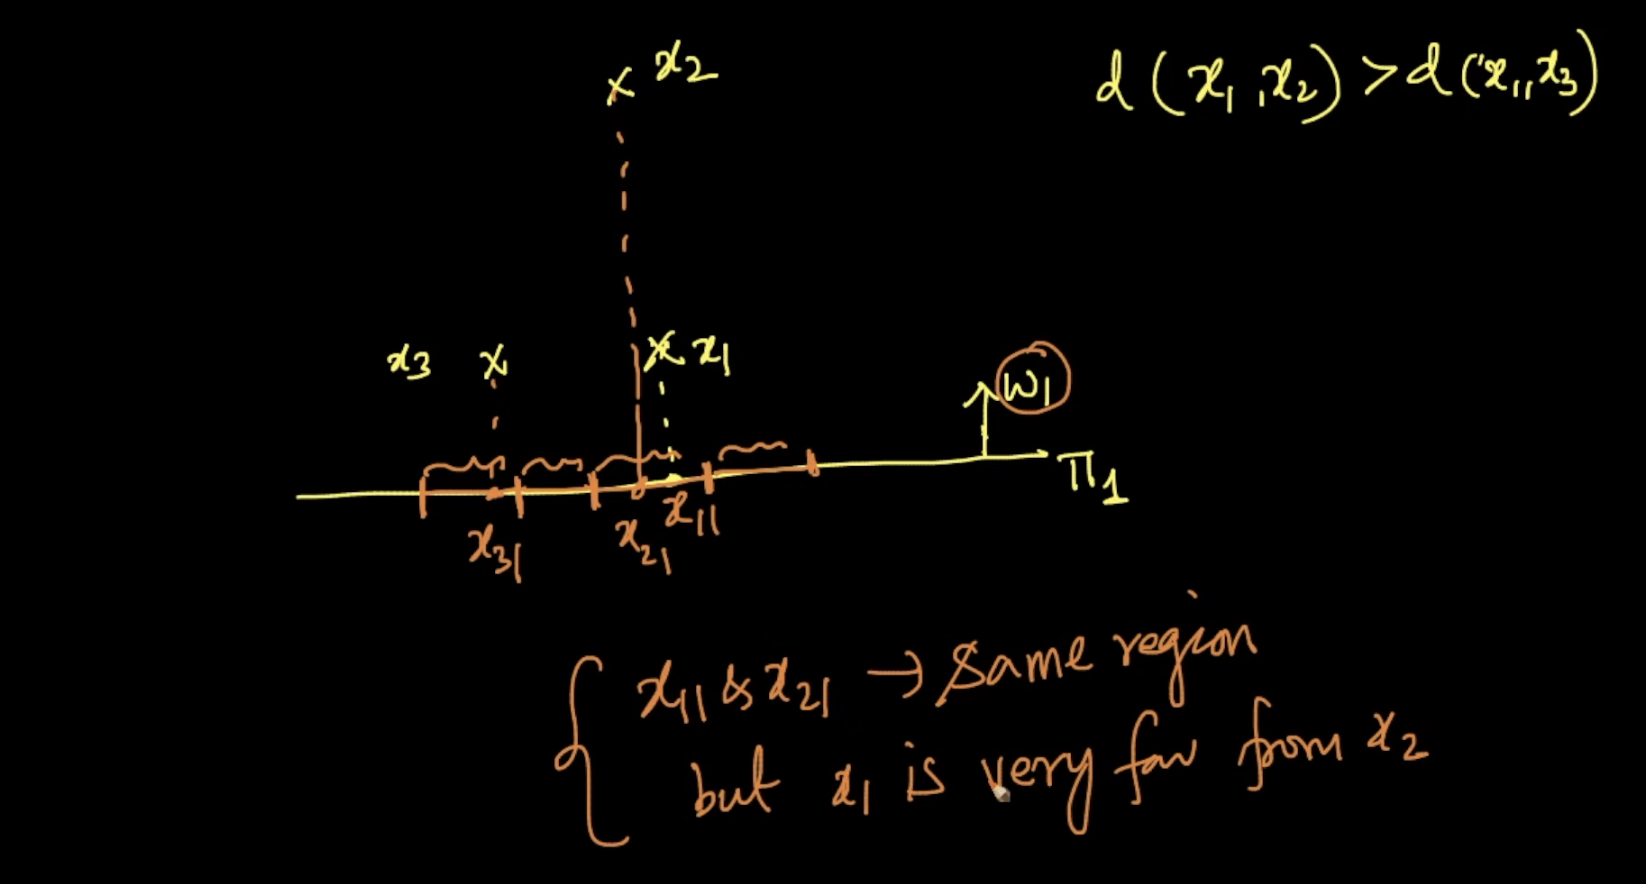 x2
d (x1, x2) > d (x1, x3)
x3
x1
w1
π1
x31
x21
x11
x11 & x21 → same region
but x1 is very far from x2